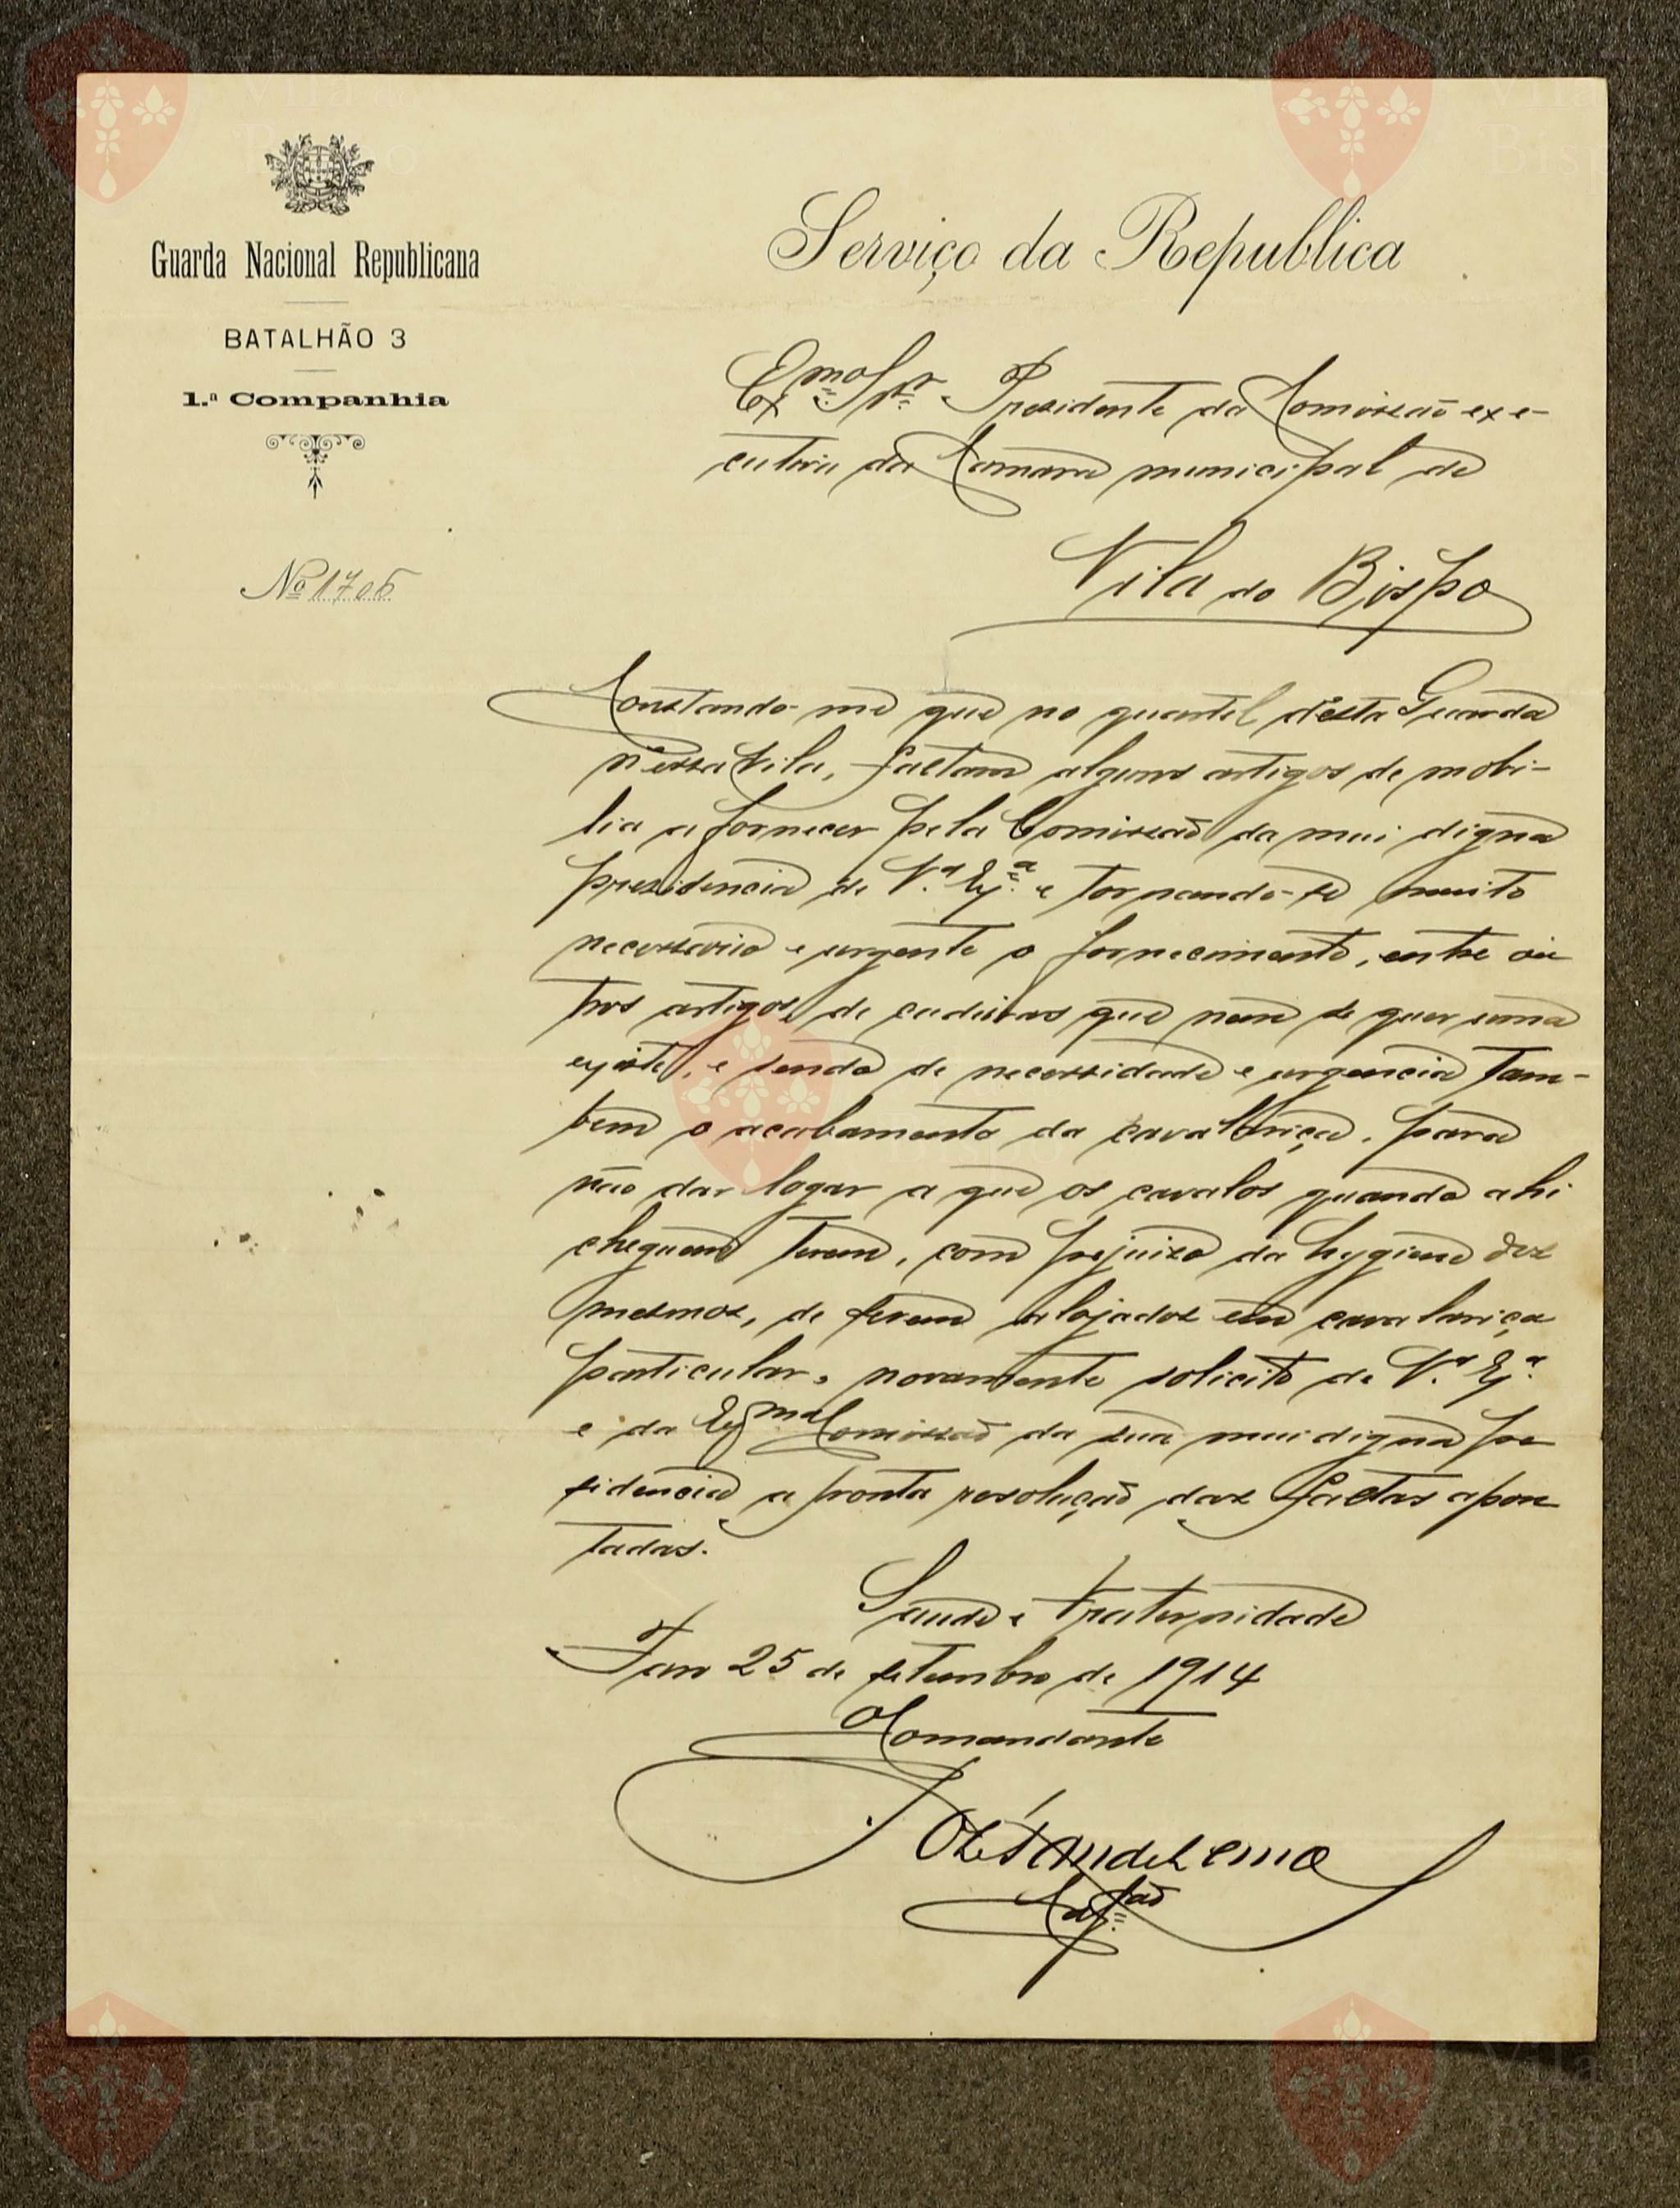 Guarda Nacional Republicana
BATALHÃO 3
1.ª Companhia
Nº 1706
Serviço da Republica
Exmo Snr. Presidente da Comissão exe-
cutiva da Camara municipal de
Vila do Bispo
Constando-me que no quartel desta Guarda
n'essa Vila, faltam alguns artigos de mobi-
lia a fornecer pela Comissão da mui digna
presidencia de V.ª Ex.ª e tornando-se muito
necessario e urgente o fornecimento, entre ou
tros artigos, de cadeiras que nem se quer uma
existe, e sendo de necessidade e urgencia tam-
bem o acabamento da cavalariça, para
não dar logar a que os cavalos quando ahi
cheguem terem, com prejuizo da hygiene dos
mesmos, de serem alojados em cavalariça
particular, novamente solicito de V.ª Ex.ª
e da Exma Comissão da sua mui digna pre
sidencia a pronta resolução das faltas apon
tadas.
Saude e Fraternidade
25 de setembro de 1914
O Comandante
José
Capão
Vila do
Bispo